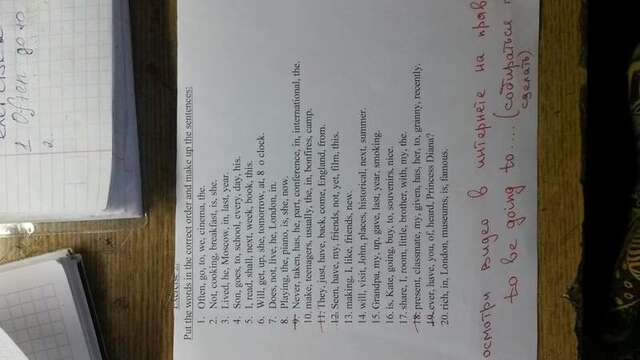 Put the words in the correct order and make up the sentences:
1. Often, go, to, we, cinema, the.
2. Not, cooking, breakfast, is, she.
3. Lived, he, Moscow, in, last, year.
4. Son, goes, to, school, every, day, his.
5. I, read, shall, next, week, book, this.
6. Will, get, up, she, tomorrow, at, 8 o clock.
7. Does, not, live, he, London, in.
8. Playing, the, piano, is, she, now.
9. Never, taken, has, he, part, conference, in, international, the.
10. make, teenagers, usually, the, in, bonfires, camp.
11. They, just, have, back, come, England, from.
12. Seen, have, my, friends, not, yet, film, this.
13. making, I, like, friends, new.
14. will, visit, John, places, historical, next, summer.
15. Grandpa, my, up, gave, last, year, smoking.
16. is, Kate, going, buy, to, souvenirs, nice.
17. share, I, room, little, brother, with, my, the.
18. present, classmate, my, given, has, her, to, granny, recently.
19. ever, have, you, of, heard, Princess Diana?
20. rich, in, London, museums, is, famous.
осмотри видео в интернете на прав
to be going to.... (собираться
сделать)
1 Often go to
2.